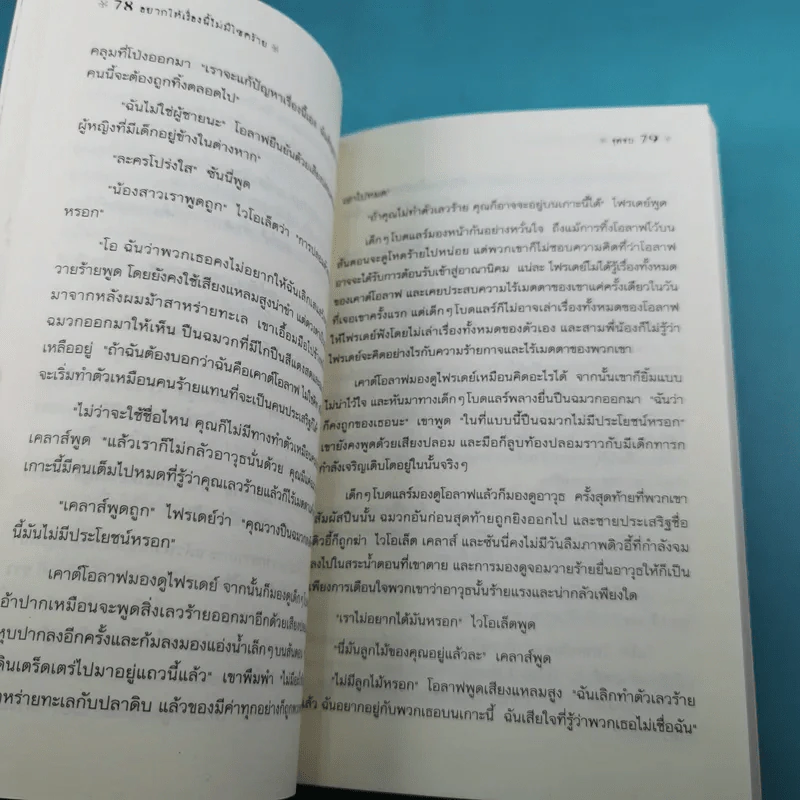 * 78 อยากให้เรื่องนี้ไม่มีโชคร้าย *
คลุมที่โป่งออกมา "เราจะแก้ปัญหาเรื่องนี้เอง
คนนี้จะต้องถูกทิ้งตลอดไป"
"ฉันไม่ใช่ผู้ชายนะ" โอลาฟยืนยันด้วยเสียง
ผู้หญิงที่มีเด็กอยู่ข้างในต่างหาก"
"ละครโปร่งใส" ซันนี่พูด
"น้องสาวเราพูดถูก" ไวโอเล็ตว่า
หรอก"
"โอ ฉันว่าพวกเธอคงไม่อยากให้ฉันเลิก
วายร้ายพูด โดยยังคงใช้เสียงแหลมสูงน่าขำ
มาจากหลังผมม้าสาหร่ายทะเล เขาเอื้อมมือไป
ฉมวกออกมาให้เห็น ปืนฉมวกที่มีไกปืนสีแดงสด
เหลืออยู่ "ถ้าฉันต้องบอกว่าฉันคือเคาต์โอลาฟ
จะเริ่มทำตัวเหมือนคนร้ายแทนที่จะเป็นคนประเสริฐ
"ไม่ว่าจะใช้ชื่อไหน คุณก็ไม่มีทางทำตัวเหมือน
เคลาส์พูด "แล้วเราก็ไม่กลัวอาวุธนั่นด้วย
เกาะนี้มีคนเต็มไปหมดที่รู้ว่าคุณเลวร้ายแล้วก็ไร้
"เคลาส์พูดถูก" ไฟรเดย์ว่า "คุณวางปืนฉมวก
นี้มันไม่มีประโยชน์หรอก"
เคาต์โอลาฟมองดูไฟรเดย์ จากนั้นก็มองดูเด็กๆ
อ้าปากเหมือนจะพูดสิ่งเลวร้ายออกมาอีกด้วยเสียง
หุบปากลงอีกครั้งและก้มลงมองแอ่งน้ำเล็กๆ บนสันดอน
ดินเตร็ดเตร่ไปมาอยู่แถวนี้แล้ว" เขาพึมพำ
หร่ายทะเลกับปลาดิบ แล้วของมีค่าทุกอย่างก็ถูก
* จุดจบ 79 *
เอาไปหมด"
"ถ้าคุณไม่ทำตัวเลวร้าย คุณก็อาจจะอยู่บนเกาะนี้ได้" ไฟรเดย์พูด
เด็กๆ โบดแลร์มองหน้ากันอย่างหวั่นใจ ถึงแม้การทิ้งโอลาฟไว้บน
สันดอนจะดูโหดร้ายไปหน่อย แต่พวกเขาก็ไม่ชอบความคิดที่ว่าโอลาฟ
อาจจะได้รับการต้อนรับเข้าสู่อาณานิคม แน่ละ ไฟรเดย์ไม่ได้รู้เรื่องทั้งหมด
ของเคาต์โอลาฟ และเคยประสบความไร้เมตตาของเขาแค่ครั้งเดียวในวัน
ที่เจอเขาครั้งแรก แต่เด็กๆ โบดแลร์ก็ไม่อาจเล่าเรื่องทั้งหมดของโอลาฟ
ให้ไฟรเดย์ฟังโดยไม่เล่าเรื่องทั้งหมดของตัวเอง และสามพี่น้องก็ไม่รู้ว่า
ไฟรเดย์จะคิดอย่างไรกับความร้ายกาจและไร้เมตตาของพวกเขา
เคาต์โอลาฟมองดูไฟรเดย์เหมือนคิดอะไรได้ จากนั้นเขาก็ยิ้มแบบ
ไม่น่าไว้ใจ และหันมาทางเด็กๆ โบดแลร์พลางยื่นปืนฉมวกออกมา "ฉันว่า
ก็คงถูกของเธอนะ" เขาพูด "ในที่แบบนี้ปืนฉมวกไม่มีประโยชน์หรอก"
เขายังคงพูดด้วยเสียงปลอม และมือก็ลูบท้องปลอมราวกับมีเด็กทารก
กำลังเจริญเติบโตอยู่ในนั้นจริงๆ
เด็กๆ โบดแลร์มองดูโอลาฟแล้วก็มองดูอาวุธ ครั้งสุดท้ายที่พวกเขา
สัมผัสปืนนั้น ฉมวกอันก่อนสุดท้ายถูกยิงออกไป และชายประเสริฐชื่อ
ดิวอี้ก็ถูกฆ่า ไวโอเล็ต เคลาส์ และซันนี่คงไม่มีวันลืมภาพดิวอี้ที่กำลังจม
ลงไปในสระน้ำตอนที่เขาตาย และการมองดูจอมวายร้ายยื่นอาวุธให้ก็เป็น
เพียงการเตือนใจพวกเขาว่าอาวุธนั้นร้ายแรงและน่ากลัวเพียงใด
"เราไม่อยากได้มันหรอก" ไวโอเล็ตพูด
"นี่มันลูกไม้ของคุณอยู่แล้วละ" เคลาส์พูด
"ไม่มีลูกไม้หรอก" โอลาฟพูดเสียงแหลมสูง "ฉันเลิกทำตัวเลวร้าย
แล้ว ฉันอยากอยู่กับพวกเธอบนเกาะนี้ ฉันเสียใจที่รู้ว่าพวกเธอไม่เชื่อฉัน"